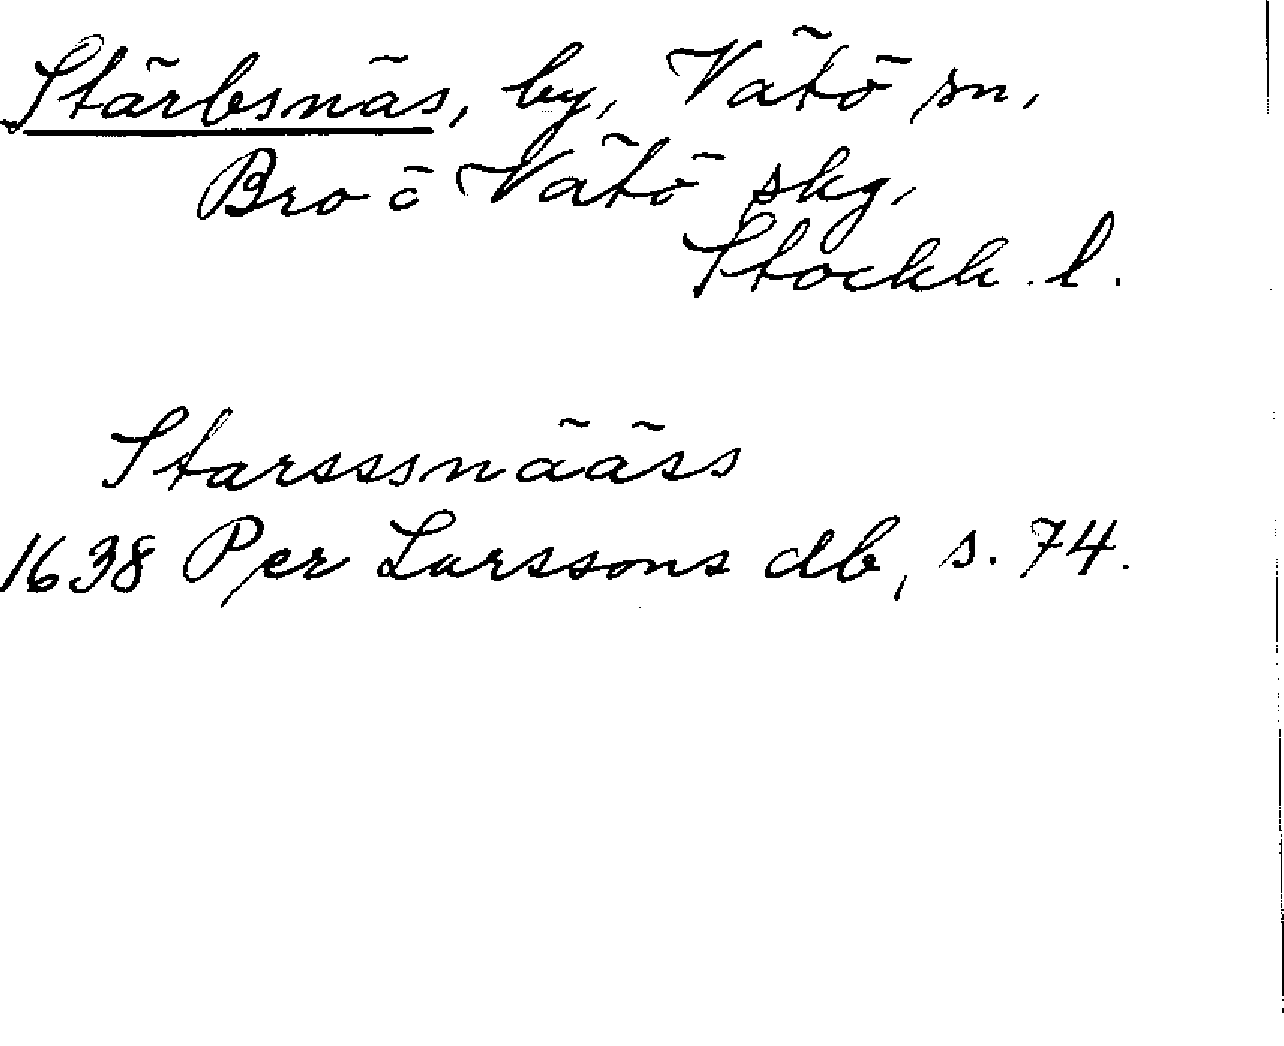 Stärbsnäs, by, Vätö sn,
Bro o Vätö skg,
Stockh. l.
Starsssnääss
1638 Per Larssons db, s. 74.